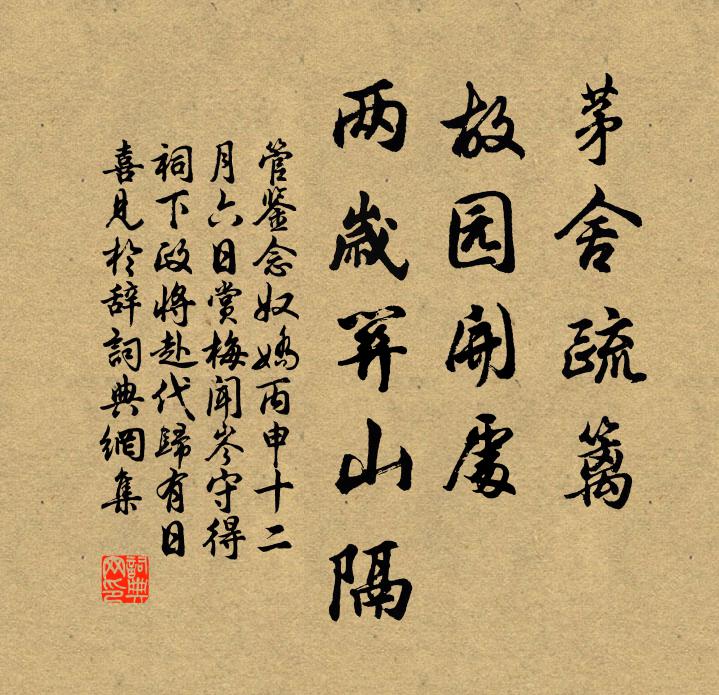 茅舍疏篱
故园開處
两歲關山隔
管鉴念奴嬌丙申十二
月六日賞梅聞岑守得
祠下政將赴代歸有日
喜見於辭詞典網集
詞典网印